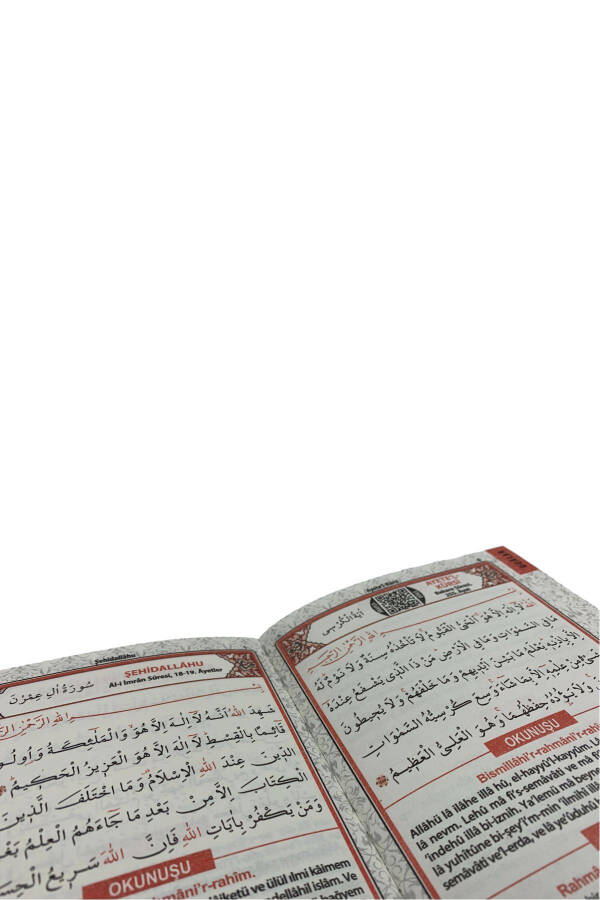 Şehidallâhu
ŞEHİDALLÂHU
Al-i İmrân Sûresi, 18-19. Ayetler
سُورَةُ اٰلِ عِمْرٰنَ
شَهِدَ اللّٰهُ اَنَّهُ لَٓا اِلٰهَ اِلَّا هُوَ وَالْمَلٰٓئِكَةُ وَاُولُو
قَٓائِمًا بِالْقِسْطِ لَٓا اِلٰهَ اِلَّا هُوَ الْعَزِيزُ الْحَكِيمُ
الدّ۪ينَ عِنْدَ اللّٰهِ الْاِسْلَامُ وَمَا اخْتَلَفَ الَّذ۪ينَ
الْكِتَابَ اِلَّا مِنْ بَعْدِ مَا جَٓاءَهُمُ الْعِلْمُ
وَمَنْ يَكْفُرْ بِاٰيَاتِ اللّٰهِ فَاِنَّ اللّٰهَ سَر۪يعُ
OKUNUŞU
mâni'r-rahîm.
melâiketü ve ülül ılmi kâimem
AYETE'L-
KÜRSİ
Bakara Sûresi,
255. Ayet
اٰيَةُ الْكُرْسِي
اَللّٰهُ لَٓا اِلٰهَ اِلَّا هُوَ الْحَيُّ الْقَيُّومُ لَا تَأْخُذُهُ سِنَةٌ وَلَا نَوْمٌ لَهُ
مَا فِي السَّمٰوَاتِ وَمَا فِي الْاَرْضِ مَنْ ذَا الَّذ۪ي يَشْفَعُ عِنْدَهُٓ
اِلَّا بِاِذْنِه۪ يَعْلَمُ مَا بَيْنَ اَيْد۪يهِمْ وَمَا خَلْفَهُمْ وَلَا يُح۪يطُونَ
مِنْ عِلْمِه۪ٓ اِلَّا بِمَا شَٓاءَ وَسِعَ كُرْسِيُّهُ السَّمٰوَاتِ
وَلَا يَؤُ۫دُهُ حِفْظُهُمَا وَهُوَ الْعَلِيُّ الْعَظ۪يمُ
OKUNUŞU
Bismillâhi'r-rahmâni'r-rahîm
Allâhü lâ ilâhe illâ hû, el-hayyü'l-kayyûm. Lâ
lâ nevm. Lehû mâ fi's-semâvâti ve mâ
'indehû illâ bi-iznih. Ya'lemü mâ beyne
lâ yuhîtûne bi-şey'i'm-min 'ilmihî illâ
semâvâti ve'l-erda, ve lâ ye'ûduhû
Rahmâ